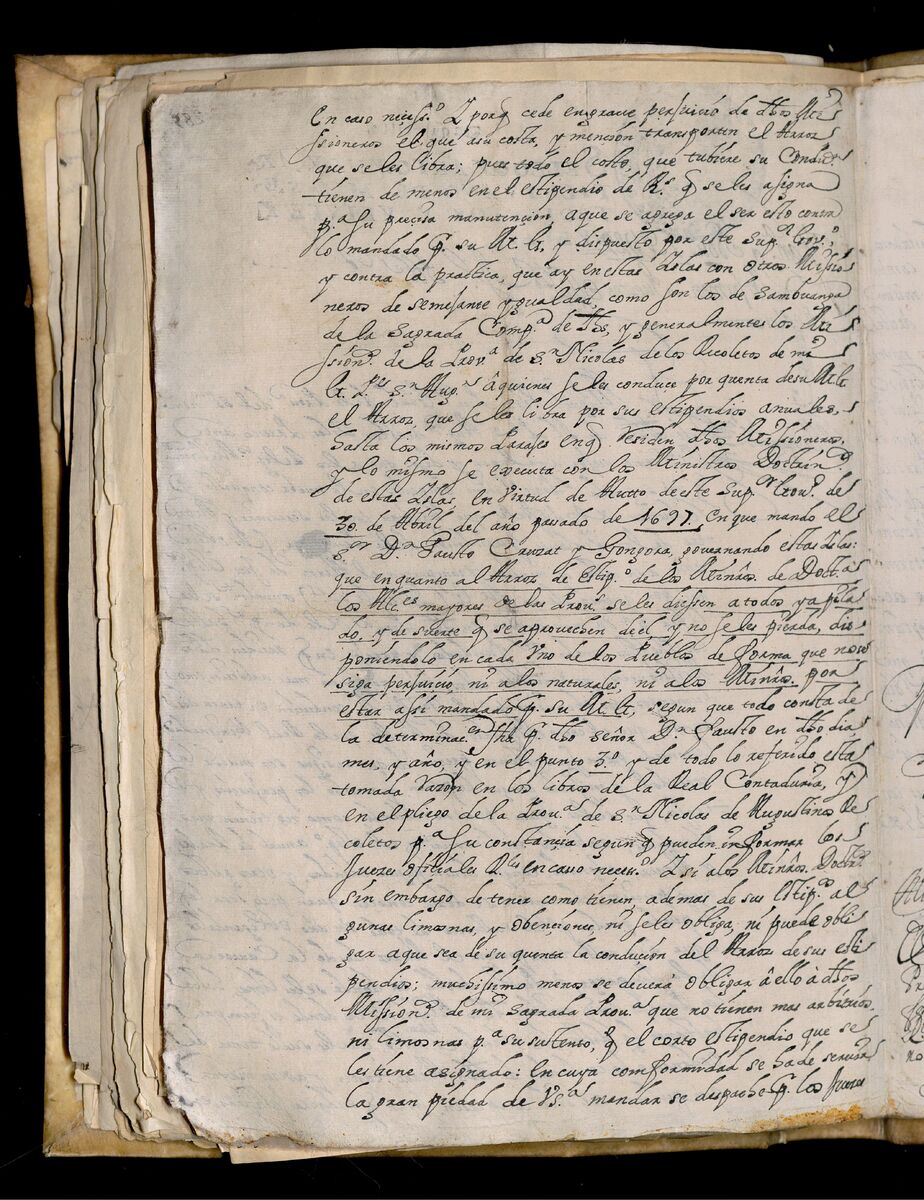 En caso necess.º Y porq̃ cede engrave perjuició de dhos Mi-
ssioneros el qué asu costa, y mención transporten el Arroz
que seles libra; pues todo el costo, que tubiere su Conduc.ⁿ
tienen de menos en el estigendio de R.ˢ q̃ se les asigna
p.ª su precisa manutención, aque se agrega el ser esto contra
lo mandado p̃. su M. G. y dispuesto por este Sup.ºʳ Gov.ⁿᵒ;
y contra la practica, que ay en estas Yslas con otros Missio
neros de semejante ygualdad, como son los de Samboanga
de la Sagrada Comp.ª de Jhs, y generalmente los Mi-
ssion.ˢ de la Prov.ª de S.ⁿ Nicolás de los Recoletos de mi
G. P.ᵉ S.ⁿ Aug.ⁿ âquienes seles conduce por quenta desu M. G.
el Arroz, que seles libra por sus estigendios anuales,
hasta los mismos Parajes enq̃ residen dhos Missioneros.
y lo mismo se executa con los Ministros Doctrin.ˢ
de estas Yslas, en Virtud de Autto de este Sup.ºʳ Gov.ⁿᵒ de
30. de Abril del año pasado de 1697. en que mando el
S.ºʳ D.ⁿ Fausto Cruzat y Gongora, governando estas Yslas:
que enquanto al Arroz de Estig.º de los Minrôs. de Doct.ªs
los Alc.ᵉˢ mayores de las Prov.ˢ seles diessen a todos ya pila
do, y de suerte q̃ se aprovechen de él, y no seles pierda, dis
poniendolo en cada Uno de los Pueblos de forma que nose
siga perjuició ni a los naturales, ni alos Minrôs. por
estar assi mandado p̃. su M. G. segun que todo consta de
la determinac.ᵒⁿ fha p̃. dho Señor D.ⁿ Fausto en dho dia
mes, y año, y en el punto 3.º y de todo lo referido esta
tomada Razon en los libros de la Real Contaduria, y
en el pliego de la Prov.ª de S.ⁿ Nicolas de Augustinos Re
coletos p.ª su constancia segun q̃ pueden informar los
Jueces oficiales R.ˡᵉˢ en caso neces.º Y si alos Minrôs. Doctrin.ˢ
sin embargo de tener como tienen, ademas de sus Estig.ˢ al
gunas limosnas, y obenciones, ni seles obliga, ni puede obli
gar aque sea de su quenta la condución del Arroz de sus esti
pendios; muchissimo menos se deverá obligar â ello à dhos
Mission.ˢ de mi Sagrada Prov.ª que no tienen mas arbitrios,
ni limosnas p.ª su sustento, q̃ el corto estigendio que se
les tiene asignado: En cuya comformidad se hade servir
la gran piedad de V.s.ª mandar se despache p̃. los Jueces